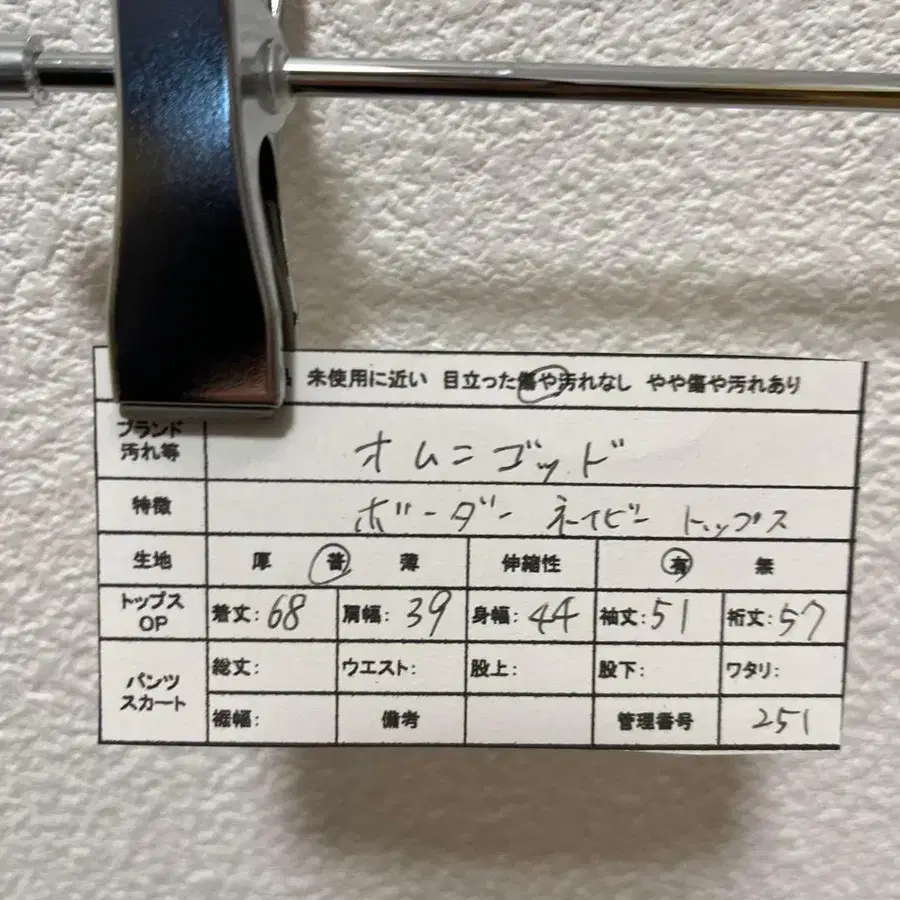 未使用に近い 目立った傷や汚れなし やや傷や汚れあり
ブランド
汚れ等
オムニゴッド
特徴 ボーダー ネイビー トップス
生地 厚 普 薄 伸縮性 有 無
トップス
OP
着丈:68 肩幅:39 身幅:44 袖丈:51 裄丈:57
パンツ
スカート
総丈: ウエスト: 股上: 股下: ワタリ:
裾幅: 備考 管理番号 251